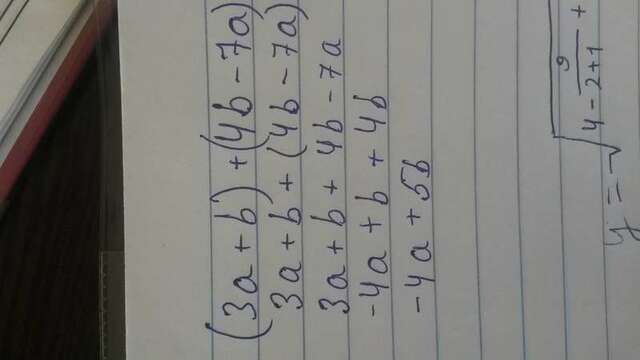 (3a + b) + (4b - 7a)
3a + b + (4b - 7a)
3a + b + 4b - 7a
-4a + b + 4b
-4a + 5b
y = √(4 - 9/(2+1) +